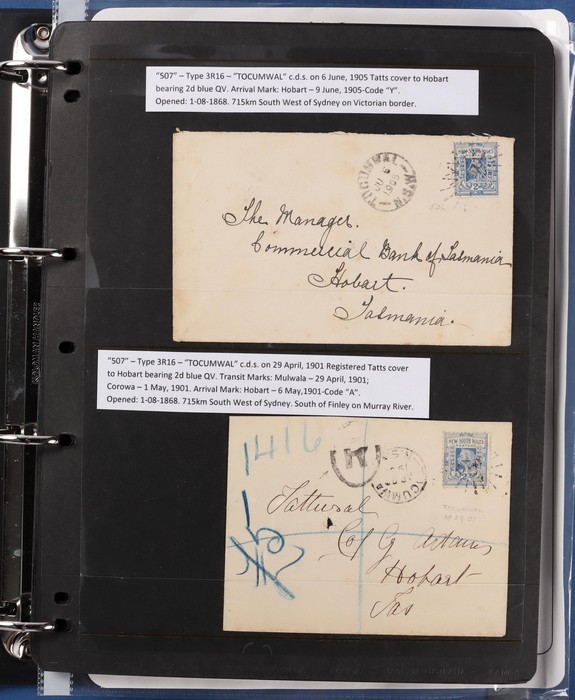 "507" – Type 3R16 – "TOCUMWAL" c.d.s. on 6 June, 1905 Tatts cover to Hobart
bearing 2d blue QV. Arrival Mark: Hobart – 9 June, 1905-Code "Y".
Opened: 1-08-1868. 715km South West of Sydney on Victorian border.
TOCUMWAL
N.S.W
JU 6
1905
The Manager.
Commercial Bank of Tasmania
Hobart.
Tasmania.
"507" – Type 3R16 – "TOCUMWAL" c.d.s. on 29 April, 1901 Registered Tatts cover
to Hobart bearing 2d blue QV. Transit Marks: Mulwala – 29 April, 1901;
Corowa – 1 May, 1901. Arrival Mark: Hobart – 6 May,1901-Code "A".
Opened: 1-08-1868. 715km South West of Sydney. South of Finley on Murray River.
1416
NEW SOUTH WALES
Tattersal
C/o G Adams
Hobart
Tas